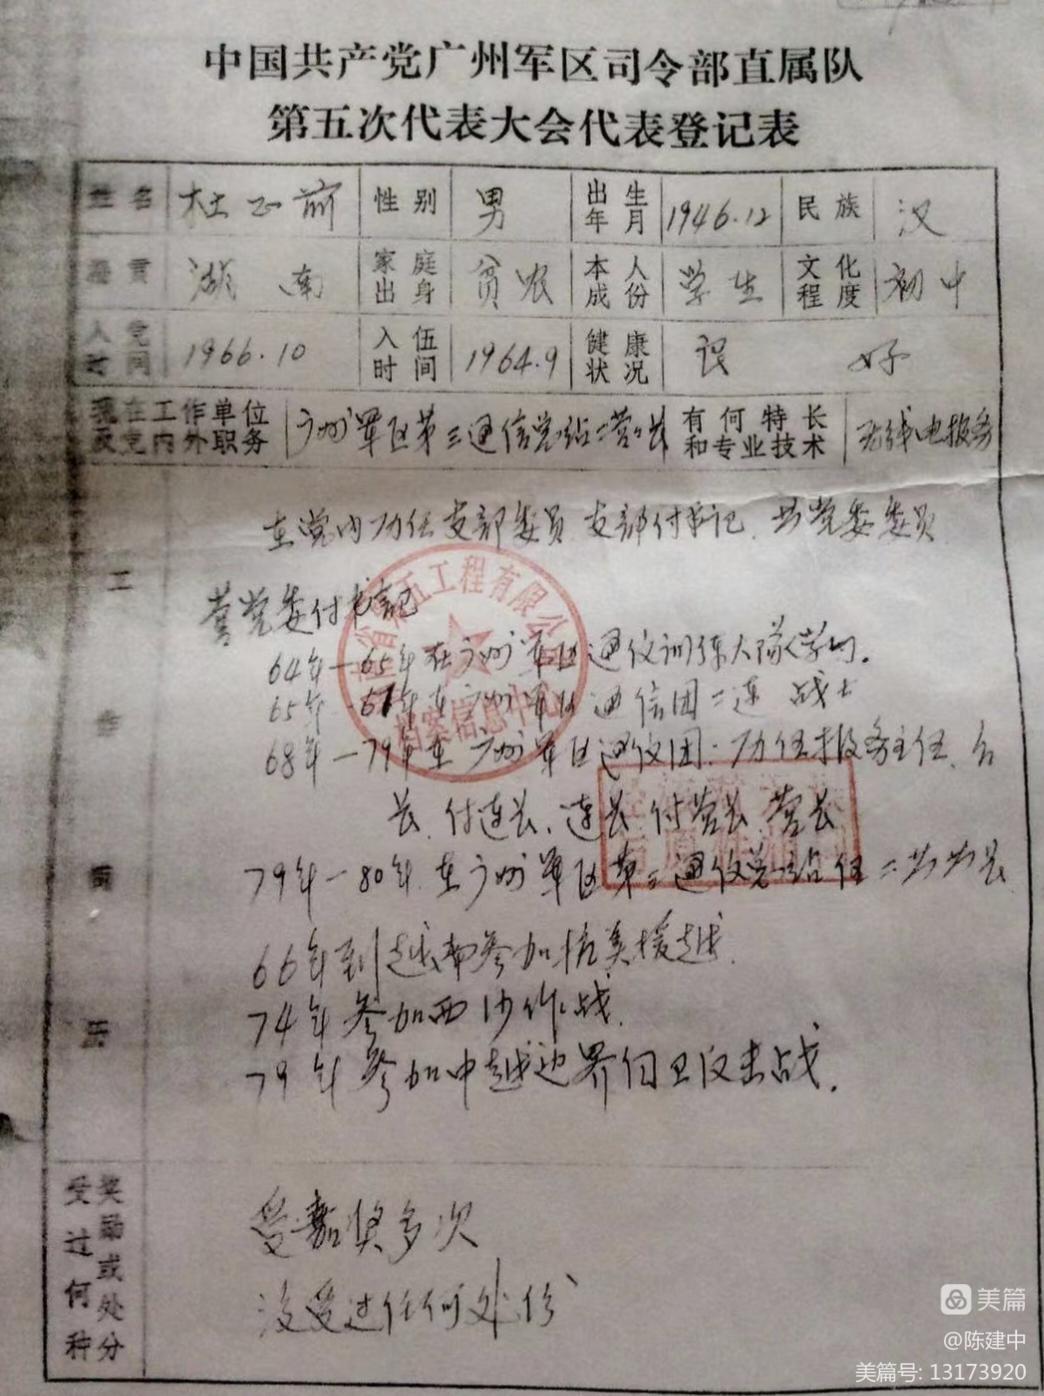 中国共产党广州军区司令部直属队
第五次代表大会代表登记表
姓名 杜正前 性别 男 出生年月 1946.12 民族 汉
籍贯 湖南 家庭出身 贫农 本人成份 学生 文化程度 初中
入党时间 1966.10 入伍时间 1964.9 健康状况 良好
现在工作单位及党内外职务 广州军区第三通信总站二营营长 有何特长和专业技术 无线电报务
工作简历
在党内历任支部委员 支部付书记 营党委委员
营党委付书记
64年-65年在广州军区通仪训练大队学习.
65年-67年在广州军区通信团二连 战士
68年-79年在广州军区通仪团.历任报务主任、台
长、付连长、连长、付营长、营长
79年-80年.在广州军区第三通仪总站任二营营长
66年到越南参加抗美援越.
74年参加西沙作战.
79年参加中越边界自卫反击战.
受过何种奖励或处分
受嘉奖多次
没受过任何处份
工程有限公司
档案信息中心
美篇
@陈建中
美篇号: 13173920